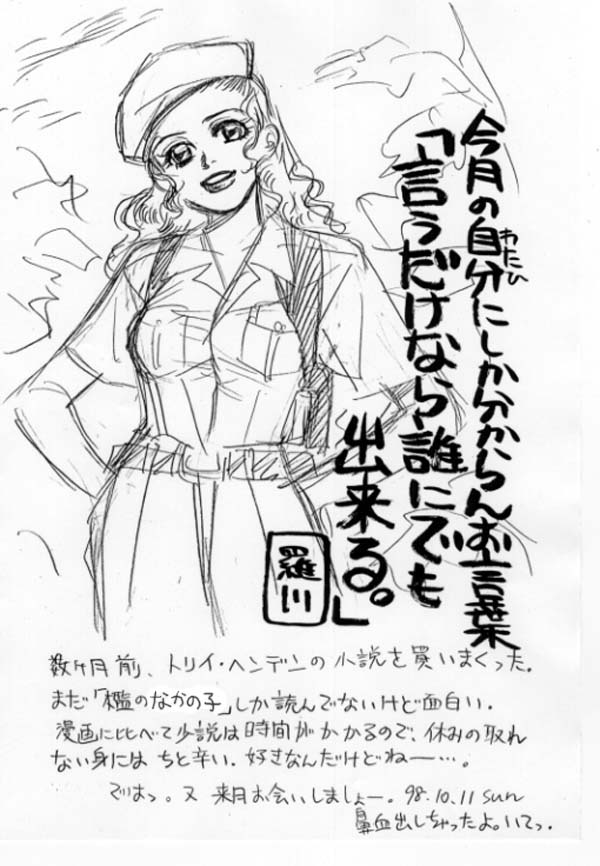 今月の自分にしか分からんお言葉
わたし
「言うだけなら誰にでも
出来る。」
羅川
数ヶ月前、トリイ・ヘンデンの小説を買いまくった。
まだ「檻のなかの子」しか読んでないけど面白い。
漫画に比べて少説は時間がかかるので、休みの取れ
ない身には ちと辛い。好きなんだけどねー…。
ではっ。又 来月お会いしましょー。98.10.11 sun
鼻血出しちゃったよ。いてっ。